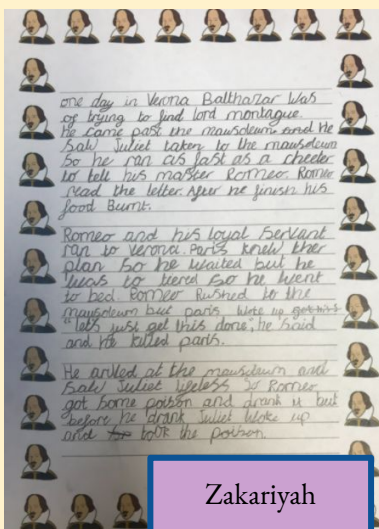 one day in Verona Balthazar Was
of trying to find lord montague.
He came past the mausoleum and He
Saw Juliet taken to the mausoleum
So he ran as fast as a cheeter
to tell his master Romeo. Romeo
read the letter. After he finish his
food Burnt.
Romeo and his loyal Servant
ran to Verona. Paris knew ther
plan So he Waited but he
Was to tiered So he Went
to bed. Romeo Rushed to the
mausoleum but paris Woke up
"let's just get this done", he said
and he killed paris.
He arived at the mausoleum and
Saw Juliet lifeless Romeo
got Some poison and drank it but
before he drank Juliet Woke up
and took the poison.
Zakariyah